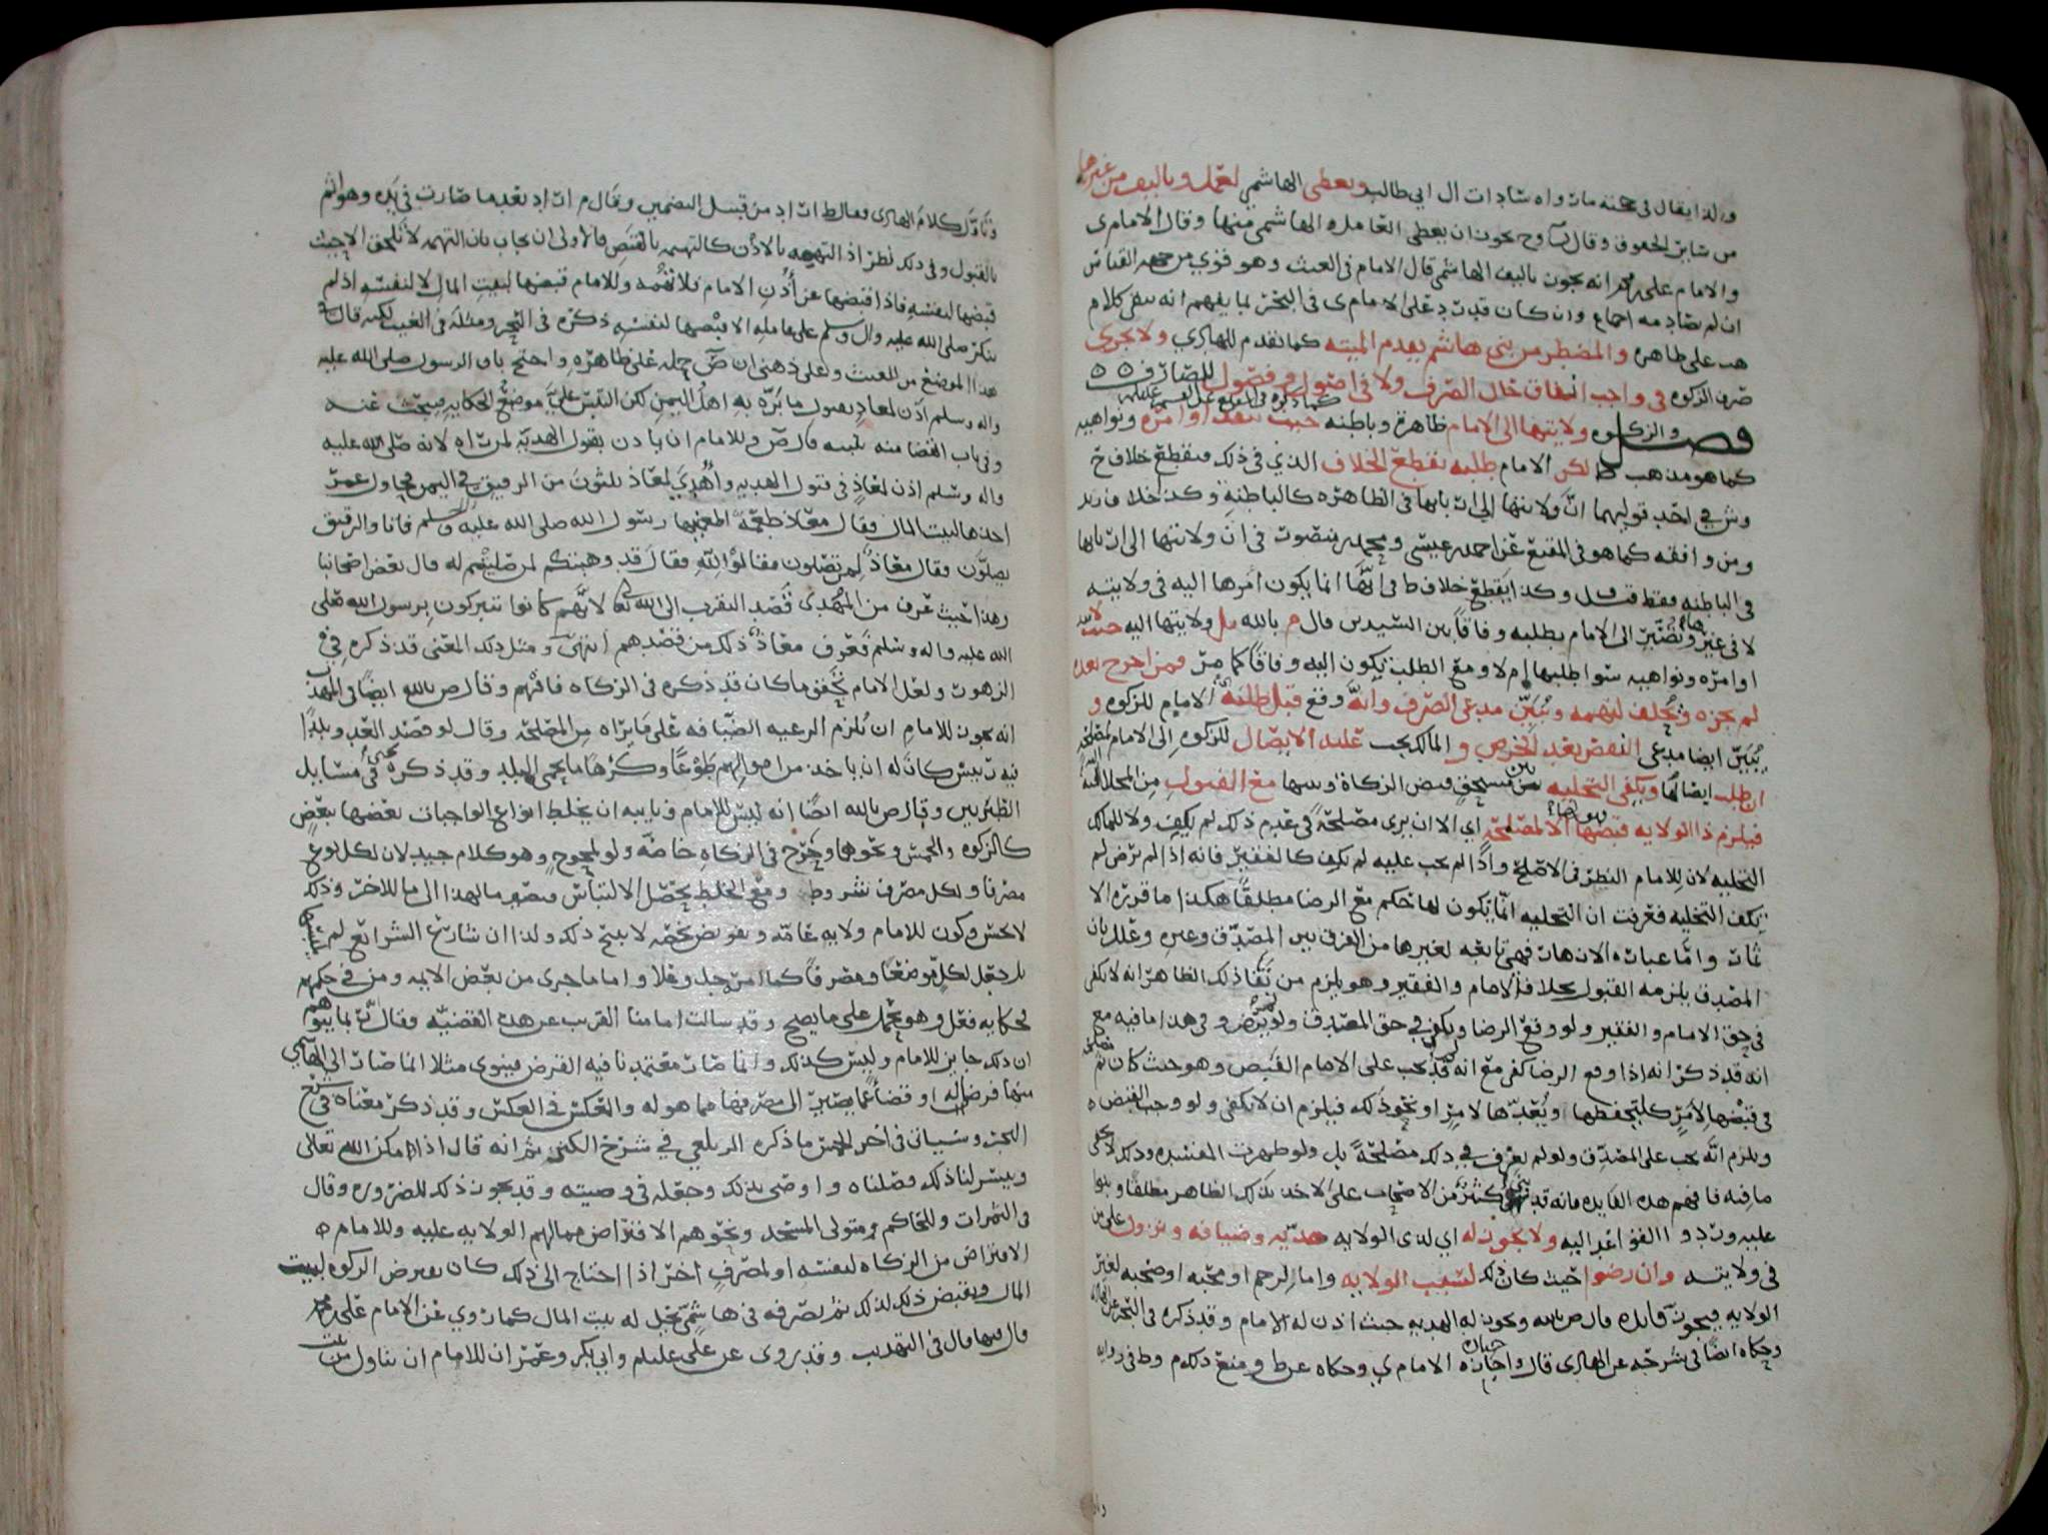 ولذا يقال في محنه مات واه سادات ال ابي طالب ويعطى الهاشمي لعمل وتاليف من غيرها
من سائر الحقوق وقال يجوز ان يعطى العامل الهاشمي منها وقال الامام ى
والامام على انه يجوز تاليف الهاشمي قال الامام في الغيث وهو قوي من جهه القياس
ان لم يصادمه اجماع وان كان قد رد على الامام ى في البحر بما يفهم انه يبقى كلام
على ظاهره والمضطر من بني هاشم يقدم الميته كما تقدم للهادي ولا يجزي
صرف الزكوه في واجب انفاق حال الصرف ولا في اصول وفصول
فصل والزكوه ولايتها الى الامام ظاهرة وباطنه حيث تنفذ اوامره ونواهيه
كما هو مذهب لكن الامام طلبه يقطع الخلاف الذي في ذلك فيقطع خلاف ح
وش في احد قوليهما ان ولايتها الى اربابها في الظاهره كالباطنة وكذا خلاف
ومن وافقه كما هو في المقنع عن احمد بن عيسى ومحمد بن منصور في ان ولايتها الى اربابها
في الباطنه فقط وكذا يقطع خلاف ط في انها انما يكون امرها اليه في ولايته
لا في غيرها وتصير الى الامام بطلبه وفاقا بين السيدين قال م بالله بل ولايتها اليه حيث
اوامره ونواهيه سوا طلبها ام لا ومع الطلب يكون اليه وفاقا كما مر فمن اخرج بعده
لم يجزه ويحلف للتهمه ويبين مدعي الصرف وانه وقع قبل طلبه الامام للزكوه و
يبين ايضا مدعي النقص بعد الخرص و المالك يجب عليه الايصال للزكوه الى الامام
ان طلب ويكفي التخليه بين مستحق قبض الزكاة وبينها مع القبول من المخلا
فيلزم ذا الولايه قبضها الا لمصلحة اي الا ان يرى مصلحة في عدم ذلك لم يكف ولا للمالك
التخليه لان للامام النظر في الاصلح واذا لم يجب عليه لم يكف كالفقير فانه اذا لم يرض لم
يكف التخليه فعرفت ان التخليه انما يكون لها حكم مع الرضا مطلقا هكذا ما قرره الا
واما عباره الازهار فهي تابعه لغيرها من الفرق بين المصدق وغيره وعلل بان
المصدق يلزمه القبول بخلاف الامام والفقير وهو يلزم من ذلك الظاهر انه لا يكفي
في حق الامام والفقير ولو وقع الرضا ويكفي في حق المصدق ولو لم يرض وفي هذا ما فيه مع
انه قد ذكر انه اذا وقع الرضا كفى مع انه قد يجب على الامام القبض وهو حيث كان ثم
في قبضها لامر كلتحفظها او نحو ذلك فيلزم ان لا يكفي ولو وجب القبض
ويلزم انه يجب على المصدق ولو لم يعرف في ذلك مصلحة بل ولو ظهرت المفسده وذلك لا يخفى
ما فيه فافهم هذه الفايده فانه قد كثر من الاصحاب على الاخذ بذلك الظاهر مطلقا وبنوا
عليه وردوا القواعد اليه ولا يجوز له اي لذي الولايه هديه وضيافه ونزول على من
في ولايته وان رضوا حيث كان ذلك لسبب الولايه واما لرحم او محبه او صحبه لغير
الولايه فيجوز قال ص بالله ويجوز له الهديه حيث اذن له الامام وقد ذكره في البحر عن الهادي
وحكاه ايضا في شرحه عن الهادي قال واختاره الامام ي وحكاه عن ط ومنع ذلك م وط في روايه
وتاول كلام الهادي ط اراد من قبل التضمين وقال م اراد بعدما صارت في يده وهو اثم
بالقبول وفي ذلك نظر اذ التهمه بالاذن كالتهمه بالقبض فالاولى ان يجاب بان التهمه لا تلحق الا حيث
قبضها لنفسه فاذا اقبضها عن اذن الامام فلا تهمه وللامام قبضها لبيت المال لا لنفسه اذ لم
ينكر صلى الله عليه وال وسلم على عامله الا قبضها لنفسه ذكره في البحر ومثله في الغيث لكنه قال في
هذا الموضع من الغيث وعلى ذهني ان ص حمله على ظاهره واحتج بان الرسول صلى الله عليه
واله وسلم اذن لمعاذ بقبول ما بره به اهل اليمن لكن التبس علي موضع الحكايه فيبحث عنه
وفي باب القضا منه تنبيه قال ص وللامام ان ياذن بقبول الهديه لمن راه لانه صلى الله عليه
واله وسلم اذن لمعاذ في قبول الهديه واهدي لمعاذ ثلثون من الرقيق في اليمن فحاول عمر
اخذها لبيت المال فقال معاذ طعمة اطعمنيها رسول الله صلى الله عليه وسلم فاتا والرقيق
يصلون فقال معاذ لمن تصلون فقالوا لله فقال قد وهبتكم لمن صليتم له قال بعض اصحابنا
وهذا حيث عرف من المهدي قصد التقرب الى الله تعالى لانهم كانوا يتبركون برسول الله صلى
الله عليه واله وسلم فعرف معاذ ذلك من قصدهم انتهى ومثل ذلك المعنى قد ذكره في
الزهور ولعل الامام تحقق ما كان قد ذكره في الزكاه فافهم وقال ص بالله ايضا في المهذب
انه يجوز للامام ان يلزم الرعيه الضيافه على ما يراه من المصلحة وقال لو قصد العدو بلدا
فيه رئيس كان له ان ياخذ من اموالهم طوعا وكرها ما يحمي البلد وقد ذكره في مسايل
الطبريين وقال ص بالله ايضا انه ليس للامام ونايبه ان يخلط انواع الواجبات بعضها ببعض
كالزكوه والخمس ونحوها وخرج في الزكاه خاصه ولو لمحوج وهو كلام جيد لان لكل نوع
مصرفا ولكل مصرف شروط ومع الخلط يحصل الالتباس فيصير ما لهذا الى ما للاخر وذلك
لا يحسن وكون للامام ولايه عامه وتفويض محض لا يبيح ذلك ولذا ان شارع الشرائع لم
بل جعل لكل موضعا ومصرفا كما امر جل وعلا واما ما جرى من بعض الايمه ومن في حكمهم
فحكايه فعل وهو محمل على ما يصلح وقد سالت امامنا القريب عن هذه القضيه فقال ربما يتوهم
ان ذلك جايز للامام وليس كذلك وانما صار معتمدنا فيه القرض فينوي مثلا انما صار الى الهاشمي
منها قرضا له او قضاء عما يصير الى مصرفها مما هو له والعكس في العكس وقد ذكر معناه في شرح
البحر وسياتي في اخر الخمس ما ذكره الزيلعي في شرح الكنز ثم انه قال اذا امكن الله تعالى
ويسر لنا ذلك فصلناه واوصى بذلك وجعله في وصيته وقد يجوز ذلك للضروره وقال
في الثمرات وللحاكم ومتولي المسجد ونحوهم الاقتراض مما لهم الولايه عليه وللامام
الاقتراض من الزكاه لنفسه او لمصرف اخر اذا احتاج الى ذلك كان يقرض الزكوه لبيت
المال ويقبض ذلك لذلك ثم يصرفه في هاشمي يحل له بيت المال كما روي عن الامام على
قال فيها قال في التهذيب وقد روى عن علي عليلم وابي بكر وعمر ان للامام ان يتناول من بيت